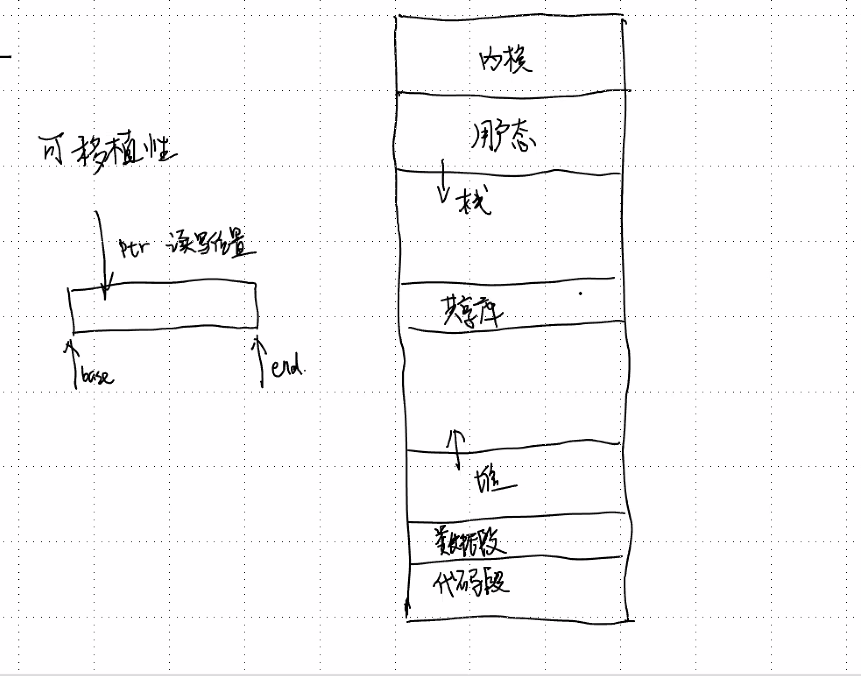 可移植性
ptr 读写位置
base
end.
内核
用户态
栈
共享库
堆
数据段
代码段